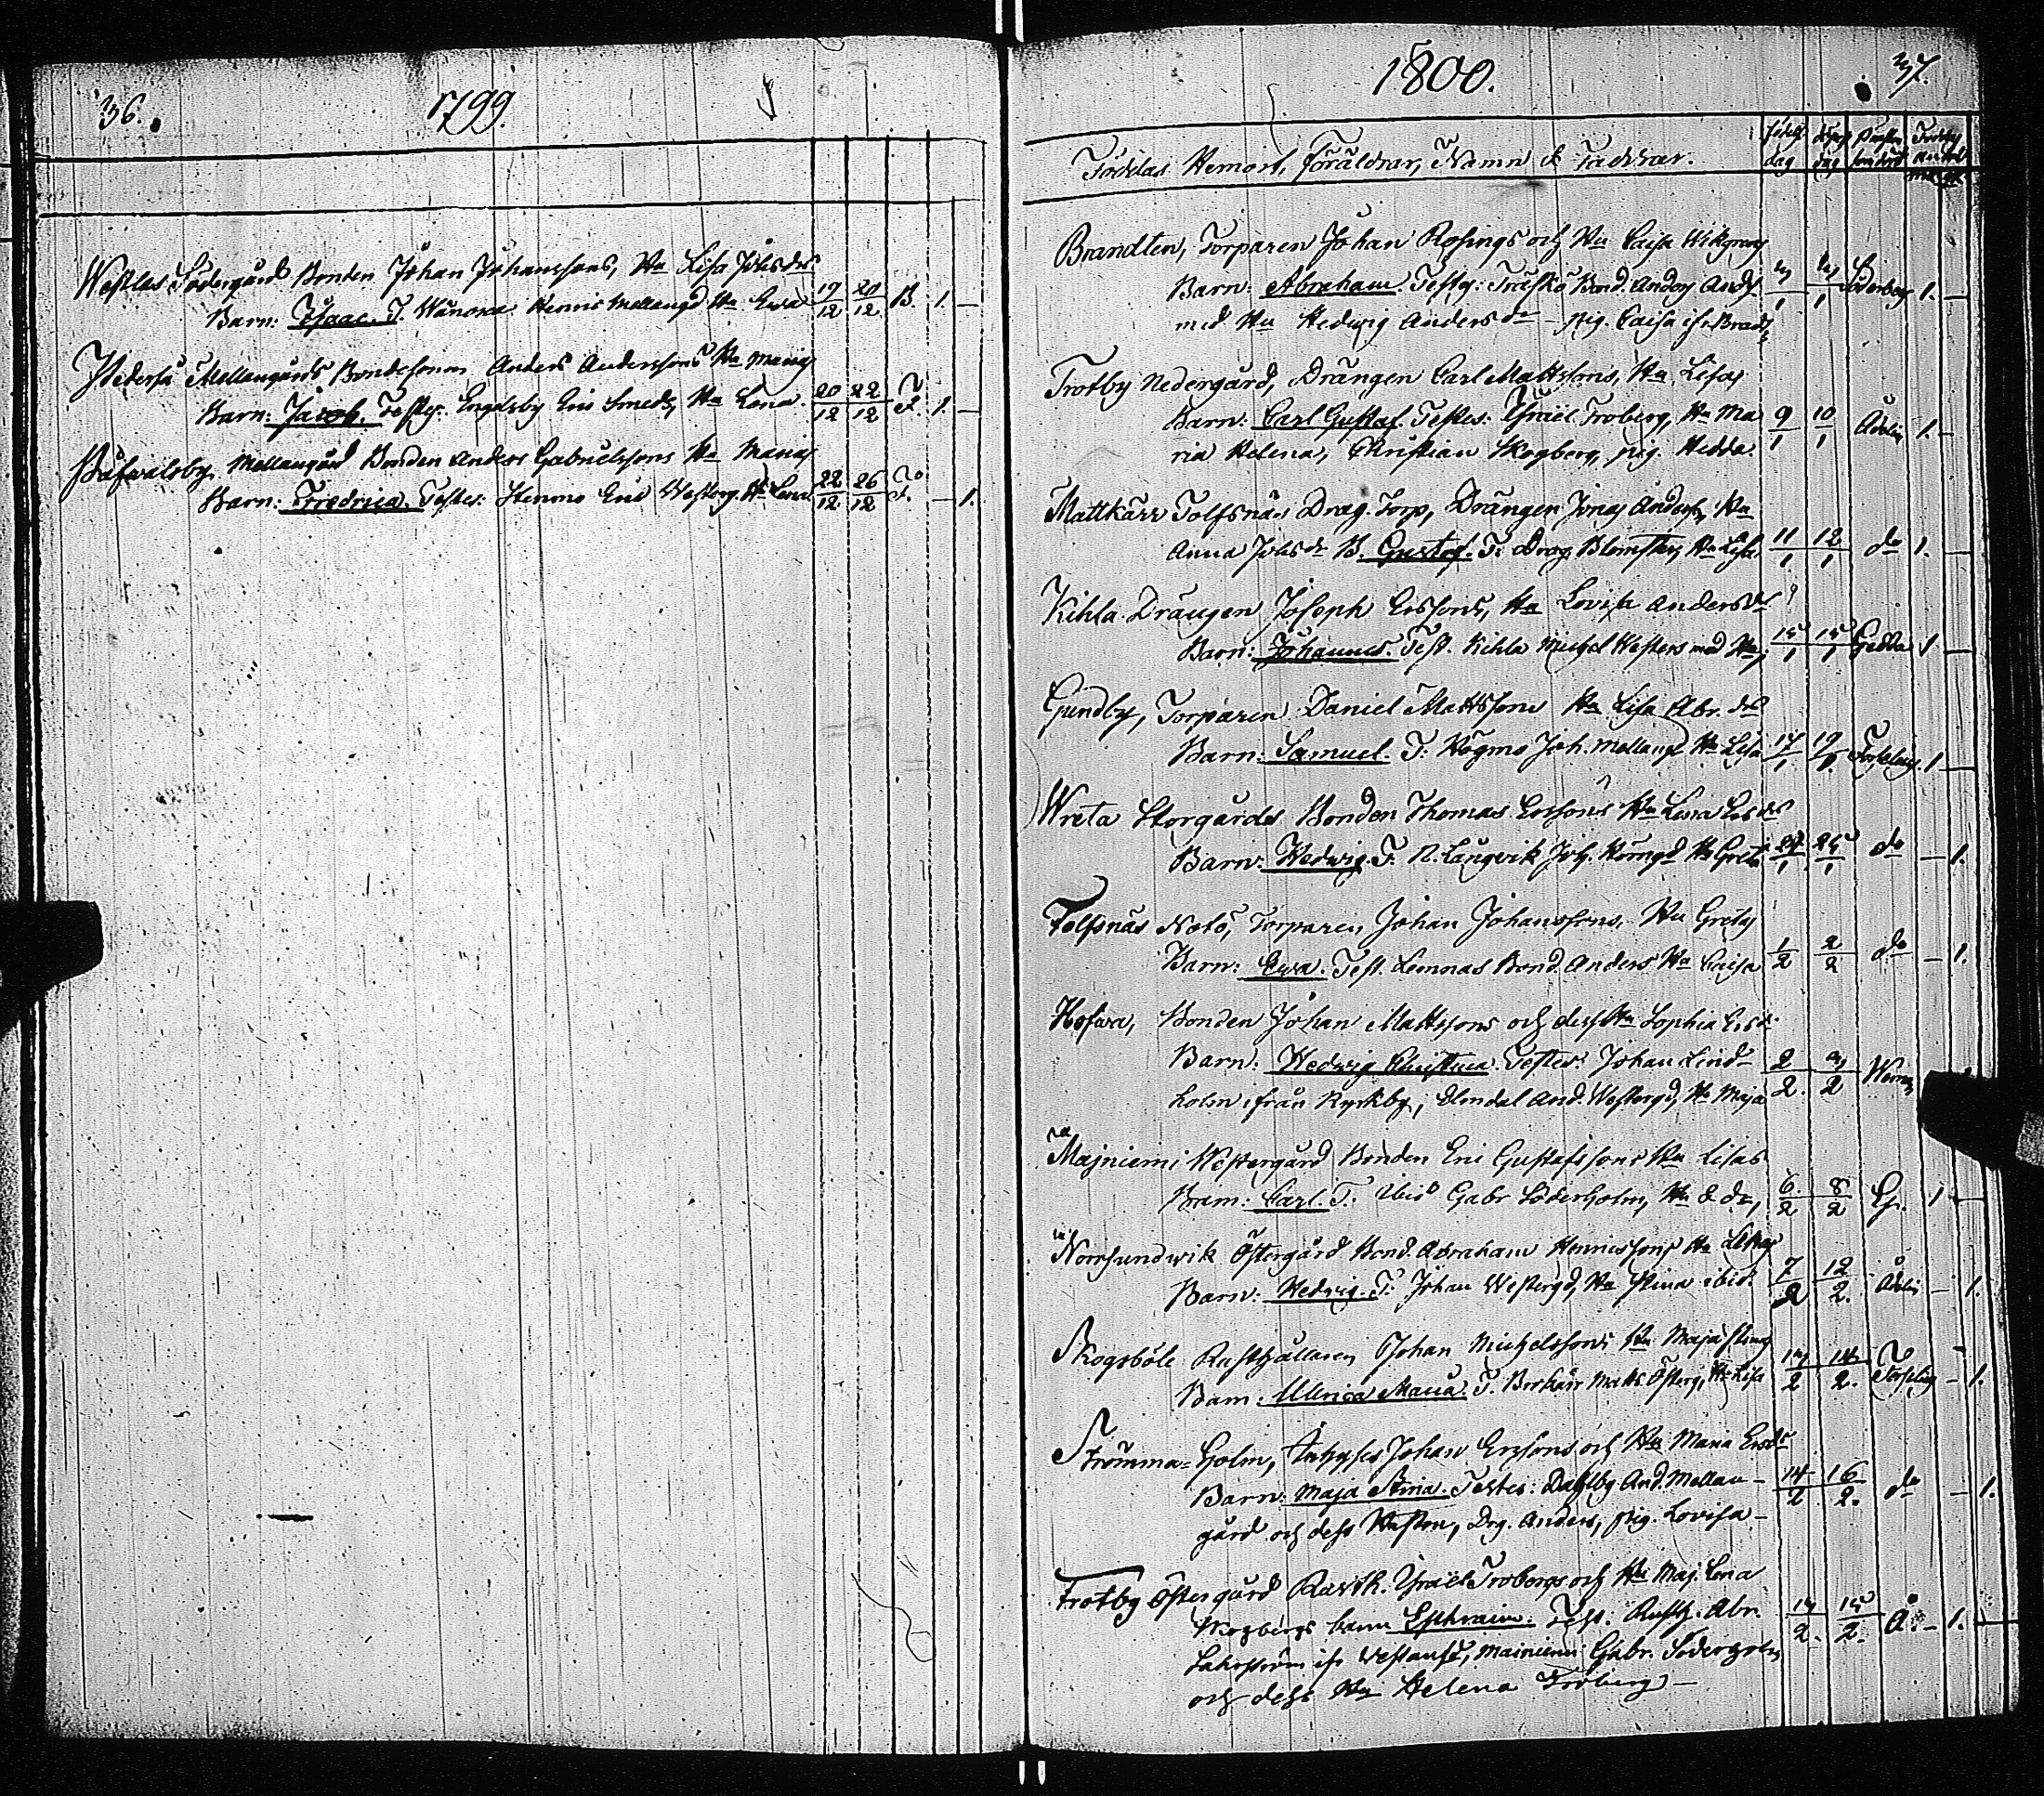 36.
1799.
Westlas Södergård Bonden Johan Johanssons, Hu Lisa Johsdrs
Barn: Isaac. T. Wånoxa Henric Mellangd Hu Ewa 19/12 20/12 B. 1. —
Pederså Mellangårds Bondesonen Anders Anderssons Hu Marias
Barn: Jacob. Testes. Engelsby Eric Smeds, Hu Lena. 20/12 22/12 F. 1. —
Påfvalsby Mellangård Bonden Anders Gabrielssons Hu Marias
Barn: Fredrica. Testes: Stenmo Eric Westerg. Hu Lena 22/12 26/12 F. — 1.
1800.
37.
Föddas Hemort, Föräldrar, Namn & Faddrar.
födelse dag
Brandten, Torparen Johan Rosings och Hu Caisa Wikgrens
Barn: Abraham. Testes: Träskö Bond. Anders Anders
med Hu Hedwig Andersdr — pig. Caisa 3/1 3/1 Söderberg 1. —
Trotby Nedergård, Drängen Carl Mattssons, Hu Lisas
Barn: Carl Gustaf. Testes: Israel Troberg, Hu Ma 9/1 10/1 Ådelin 1. —
ria Helena, Christian Skogberg, pig. Hedda.
Mattkärr Tolfsnäs Drag. Torp, Drängen Jonas Anders, Hu
Anna Johsdr B. Gustaf. T. Drag. Blomster, Hu Lisa. 11/1 12/1 do 1. —
Kihla Drängen Joseph Erssons, Hu Lovisa Andersdrs
Barn: Johannes. Test. Kihla Michel Westers med Hu, 15/1 15/1 Gedda 1 —
Gundby, Torparen Daniel Mattssons Hu Lisa Abr. drs
Barn: Samuel. T. Högmo Joh. Mellang Hu Lisa 17/1 19/1 Forselius. 1 —
Wreta Storgårds Bonden Thomas Erssons Hu Lena Ersdrs
Barn: Hedwig. T. N. Långvik Joh. Hu Greta 24/1 25/1 do — 1.
Tolfsnäs Notö, Torparen Johan Johanssons, Hu Gretas
Barn: Ewa. Test. Lemnas Bond. Anders Hu Caisa 1/2 2/2 do — 1.
Hofwa, Bonden Johan Mattssons och dess Hu Sophia Ersdr.
Barn: Hedwig Christina. Testes: Johan Lind- 2/2 3/2
holm ifrån Ryskby, Elmdal And. Westergd, Hu Maja
Majniemi Westergård Bonden Eric Gustafssons Hu Lisas
Barn: Carl. T. Ibid. Gabr Söderholm, Hu & Do, 6/2 8/2 G. 1 —
Norrsundwik Östergård Bond. Abraham Henrissons Hu
Barn: Hedwig. T. Johan Westergd, Hu Stina ibid. 7/2 12/2. Ådelin — 1.
Skogsböle Rusthållaren Johan Michelssons Hu Maja Stinas
Barn: Ullrica Maria. T. Matts Österg, Hu Lisa 13/2 14/2. Forselius — 1.
Strömma-Holm, Johan Erssons och Hu Maria Ersdrs
Barn: Maja Stina. Testes: Dahlby And. Mellan- 14/2 16/2. do — 1.
gård och dess Hustru, Drg. Anders, pig. Lovisa —
Trotby Östergård Rusth. Israel Trobergs och Hu Maj. Lena
Skogbergs barn Ephraim. Test: Rusth. Abr. 13/2. 15/2. Å. — 1. —
Westanfj, Mainiemi Gabr. Söderholm
och dess Hu Helena Troberg —